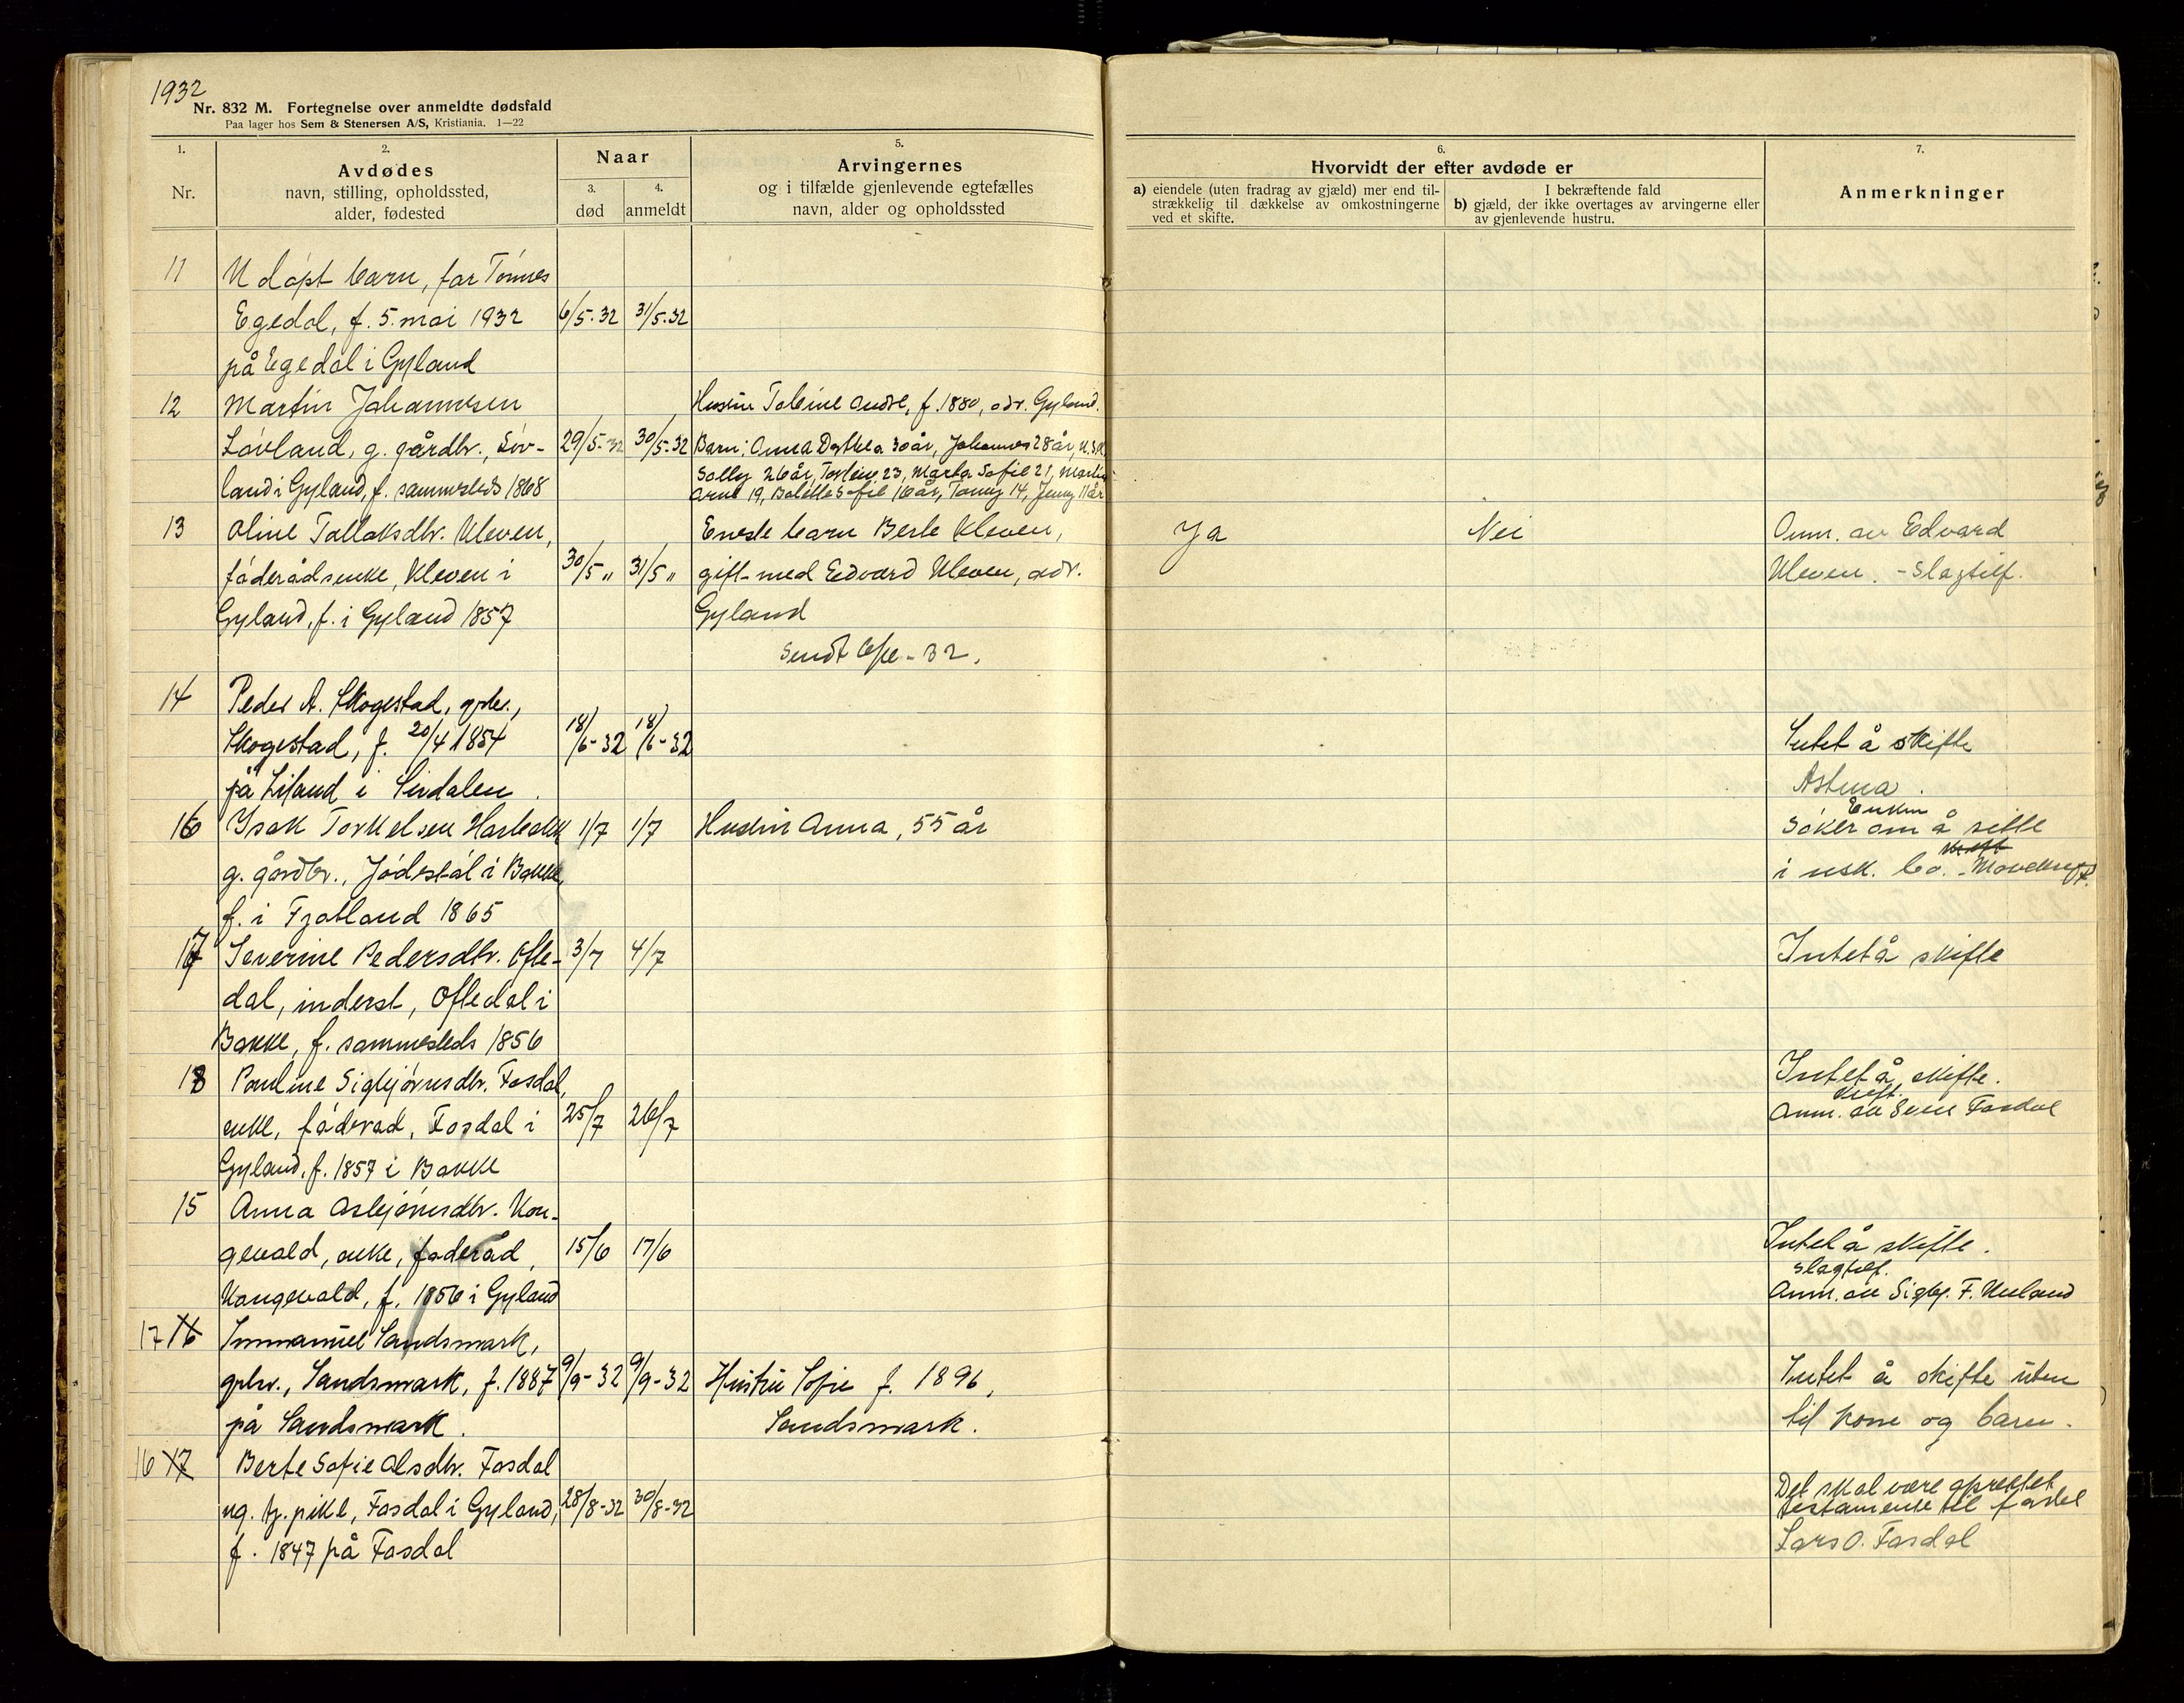 1932
Nr. 832 M. Fortegnelse over anmeldte dødsfald
Paa lager hos Sem & Stenersen A/S, Kristiania. 1—22
1.
Nr.
2.
Avdødes
navn, stilling, opholdssted,
alder, fødested
Naar
3.
død
4.
anmeldt
5.
Arvingernes
og i tilfælde gjenlevende egtefælles
navn, alder og opholdssted
6.
Hvorvidt der efter avdøde er
a) eiendele (uten fradrag av gjæld) mer end til-
strækkelig til dækkelse av omkostningerne
ved et skifte.
I bekræftende fald
b) gjæld, der ikke overtages av arvingerne eller
av gjenlevende hustru.
7.
Anmerkninger
11
Udøpt barn, far Tønnes
Egedal, f. 5. mai 1932
6/5-32 31/5-32
på Egedal i Gyland
12
Martin Johannesen
Løvland, g. gårdbr., Løv-
land i Gyland, f. sammesteds 1868
29/5-32 30/5-32
Hustru Tobine, f. 1880, adr. Gyland.
Barn: Anna Dorthea 30 år, Johannes 28 år, U.S.A.
Solly 26 år, 23, Marta Sofie 21, Martin
Arne 19, Bolette Sofie 16 år, Tomy 14, Jenny 11 år
13
Oline Tallaksdtr. Kleven,
føderådsenke, Kleven i
Gyland, f. i Gyland 1857
30/5 „ 31/5 „
Eneste barn Berte Kleven,
gift med Edvard Kleven, adr.
Gyland
sendt 6/6-32.
Ja
Nei
Anm. av Edvard
Kleven. - Slagtilf.
14
Peder A. Skogestad, grbr.,
Skogestad, f. 20/4 1854
på Liland i Sirdalen.
18/6-32 18/6-32
Intet å skifte
Astma.
16
Isak Torkelsen
g. gårdbr., Jødestøl i Bakke,
f. i Fjotland 1865
1/7 1/7
Hustru Anna, 55 år
Enken
Søker om å sitte
i usk. bo. - Mavekreft.
17
Severine Pedersdtr. Ofte-
dal, inderst, Oftedal i
Bakke, f. sammesteds 1856
3/7 4/7
Intet å skifte
18
Pauline Sigbjørnsdtr. Fosdal,
enke, føderåd, Fosdal i
Gyland, f. 1857 i Bakke
25/7 26/7
Intet å skifte.
Kreft.
Anm. av Sven Fosdal
15
Anna Asbjørnsdtr. Kon-
gevold, enke, føderåd,
Kongevold, f. 1856 i Gyland
15/6 17/6
Intet å skifte.
Slagtilf.
Anm. av Sigbj. F. Nuland
17 16
Immanuel Sandsmark,
grbr., Sandsmark, f. 1887
på Sandsmark.
9/9-32 9/9-32
Hustru Sofie f. 1896,
Sandsmark.
Intet å skifte uten
til kone og barn.
16 17
Berte Sofie Olsdtr. Fosdal
ug. tj. pike, Fosdal i Gyland,
f. 1847 på Fosdal
28/8-32 30/8-32
Det skal være oprettet
testamente til fordel
Lars O. Fosdal